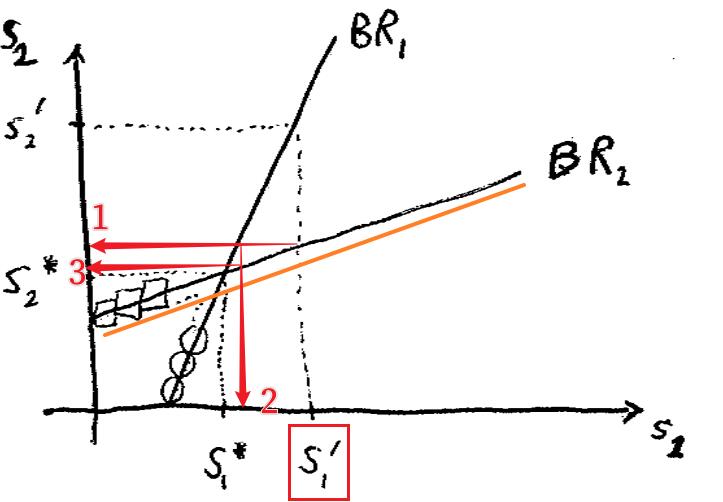 S₂
BR₁
S₂′
BR₂
1
S₂*
3
2
S₁
S₁*
S₁′